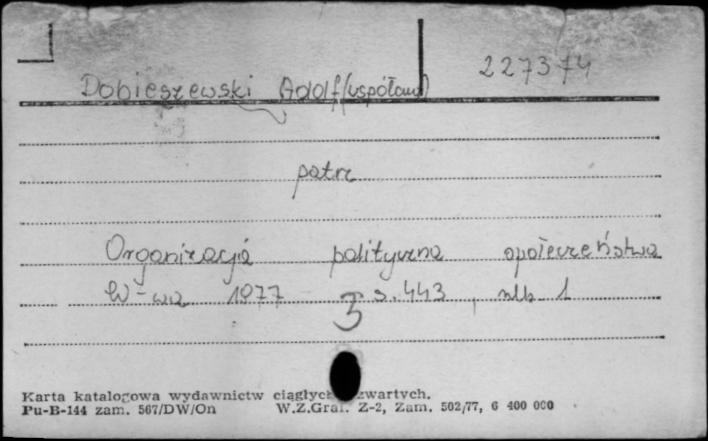 227374
Dobieszewski Adolf (współaut)
patrz
Organizacja polityczna społeczeństwa
W-wa 1977 s. 443, nlb 1
Karta katalogowa wydawnictw ciągłych zwartych.
Pu-B-144 zam. 567/DW/On W.Z.Graf. Z-2, Zam. 502/77, 6 400 000